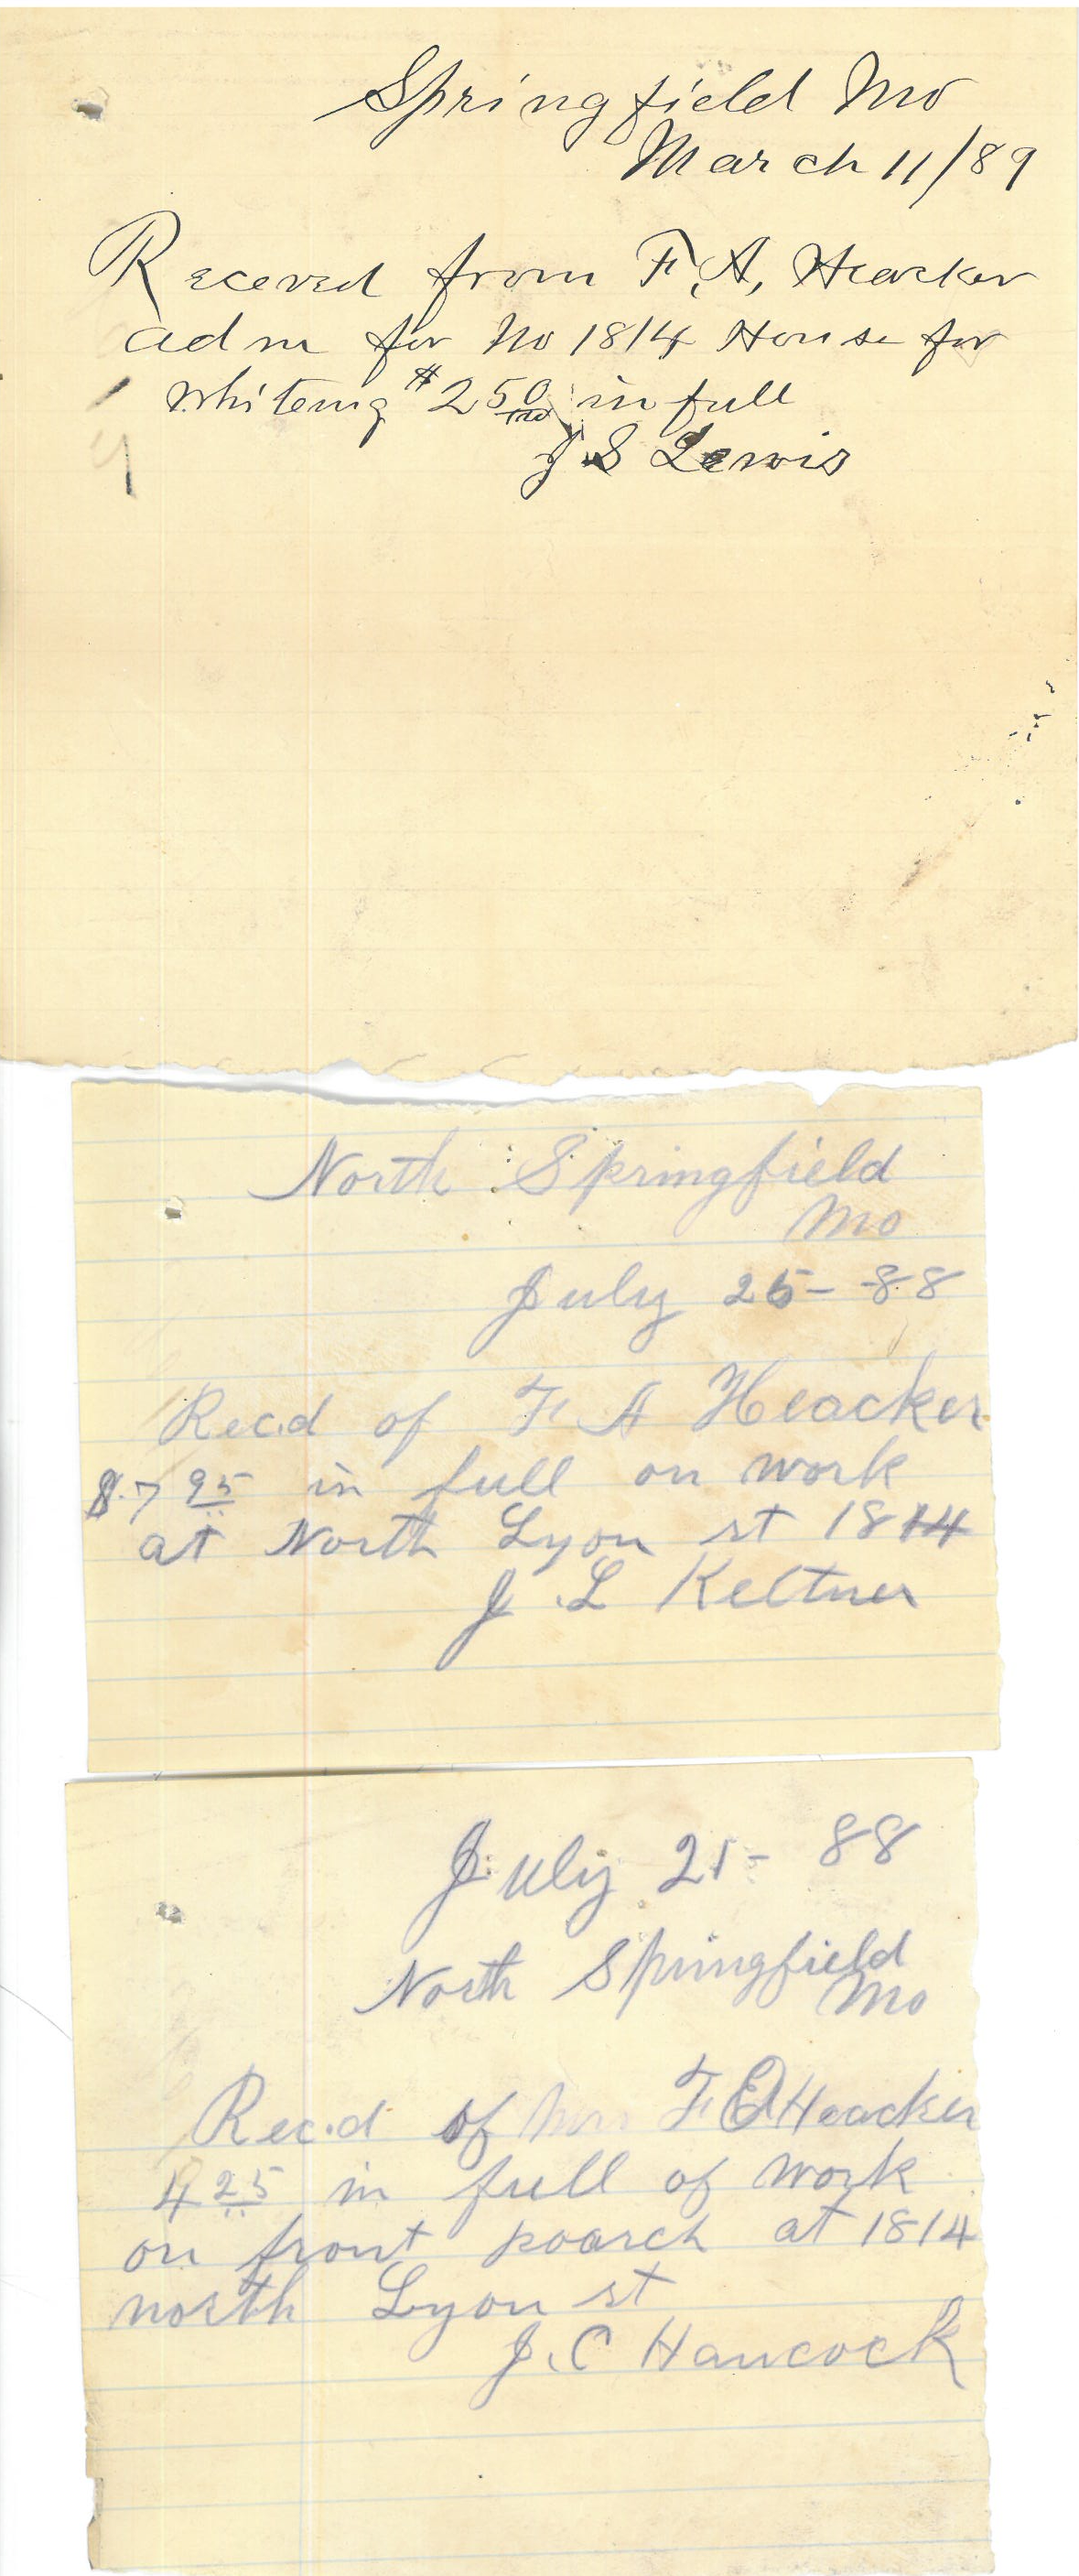 Springfield Mo
March 11/89
Receved from F, A, Heacker
adm for No 1814 House for
whiteing $2 50/100 in full
J S Lewis
North Springfield
Mo
July 25- 88
Rec.d of F A Heacker
$.7 95 in full on work
at North Lyon st 1814
J. L Keltner
July 21- 88
North Springfield
Mo
Rec.d of F Heacker
4 25 in full of work
on front poarch at 1814
north Lyon st
J. C Hancock